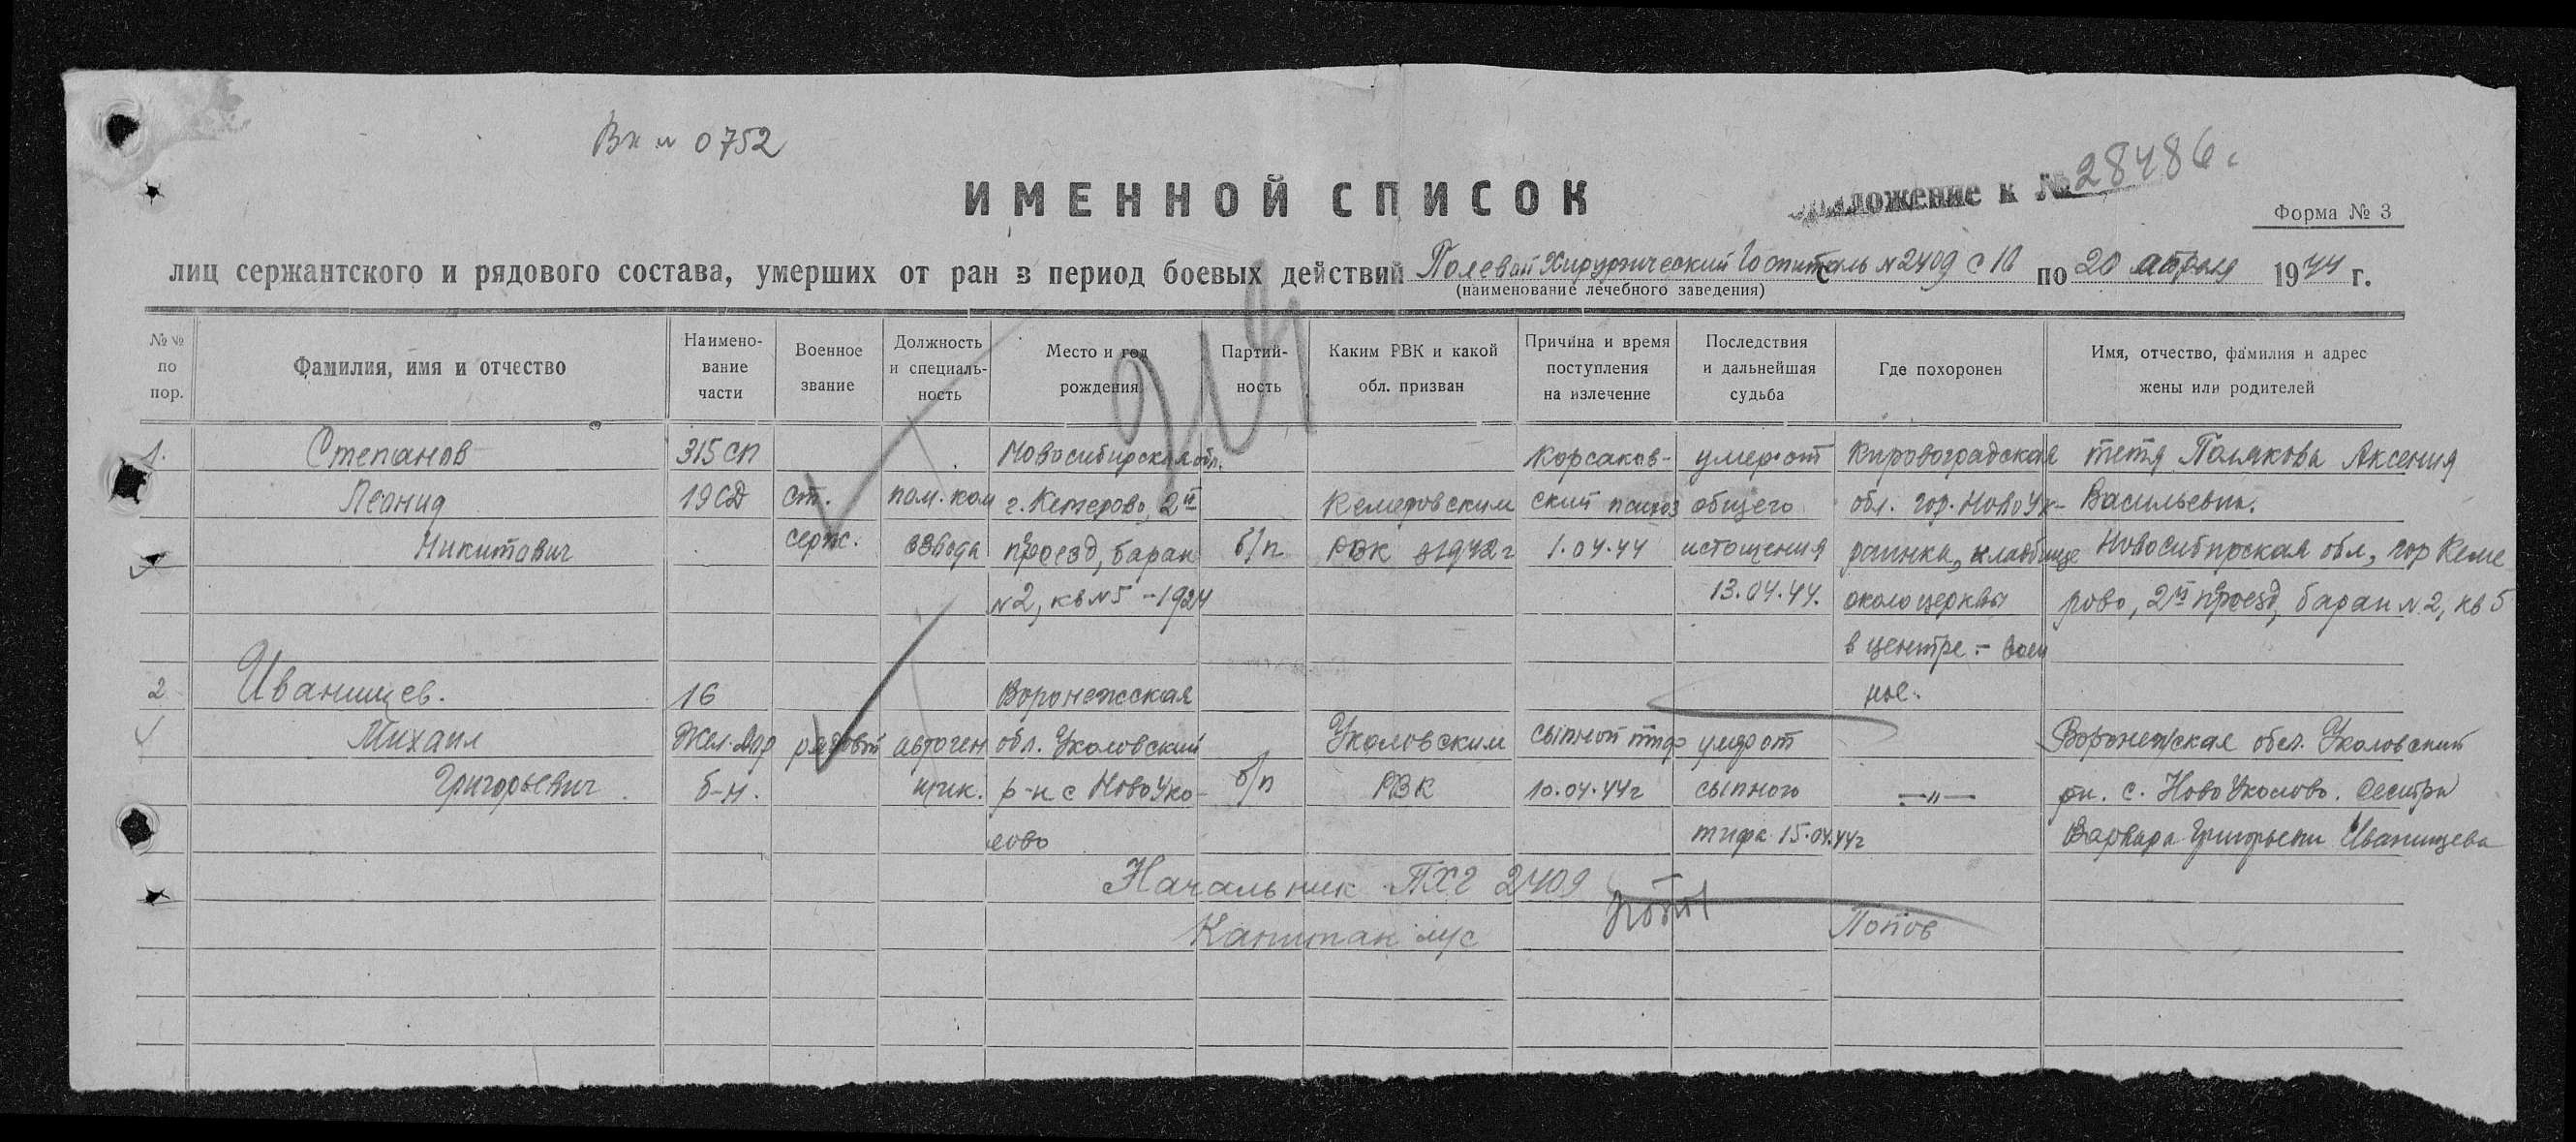 Вх № 0752
ИМЕННОЙ СПИСОК
Приложение к № 28486.
Форма № 3
лиц сержантского и рядового состава, умерших от ран в период боевых действий Полевой Хирургический Госпиталь № 2409 с 10 по 20 апреля 1944 г.
(наименование лечебного заведения)
№№ по пор.
Фамилия, имя и отчество
Наименование части
Военное звание
Должность и специальность
Место и год рождения
Партийность
Каким РВК и какой обл. призван
Причина и время поступления на излечение
Последствия и дальнейшая судьба
Где похоронен
Имя, отчество, фамилия и адрес жены или родителей
1. Степанов 315 СП Новосибирская обл. Корсаков- умер от Кировоградская тетя Полякова Аксения
Леонид 19 СД ст. пом. ком г. Кемерово, 2й Кемеровским ский психоз общего обл. гор. Ново Ук- Васильевна.
Никитович серж. взвода проезд, барак б/п РВК в 1942 г 1.04.44 истощения раинка, кладбище Новосибирская обл, гор Кеме
№2, кв №5 - 1924 13.04.44. около церквы рово, 2й проезд, барак №2, кв 5
в центре. - воен
ное.
2 Иванищев. 16 Воронежская
Михаил Жел. Дор рядовой автоген обл. Уколовский Уколовским сыпной тиф умер от Воронежская обл. Уколовский
Григорьевич б-н. щик. р-н с Ново Уко- б/п РВК 10.04.44г сыпного —"— рн. с. Ново Уколово. Сестра
лово тифа 15.04.44г Варвара Григорьевн Иванищева
Начальник ПХГ 2409
Капитан м/с Попов